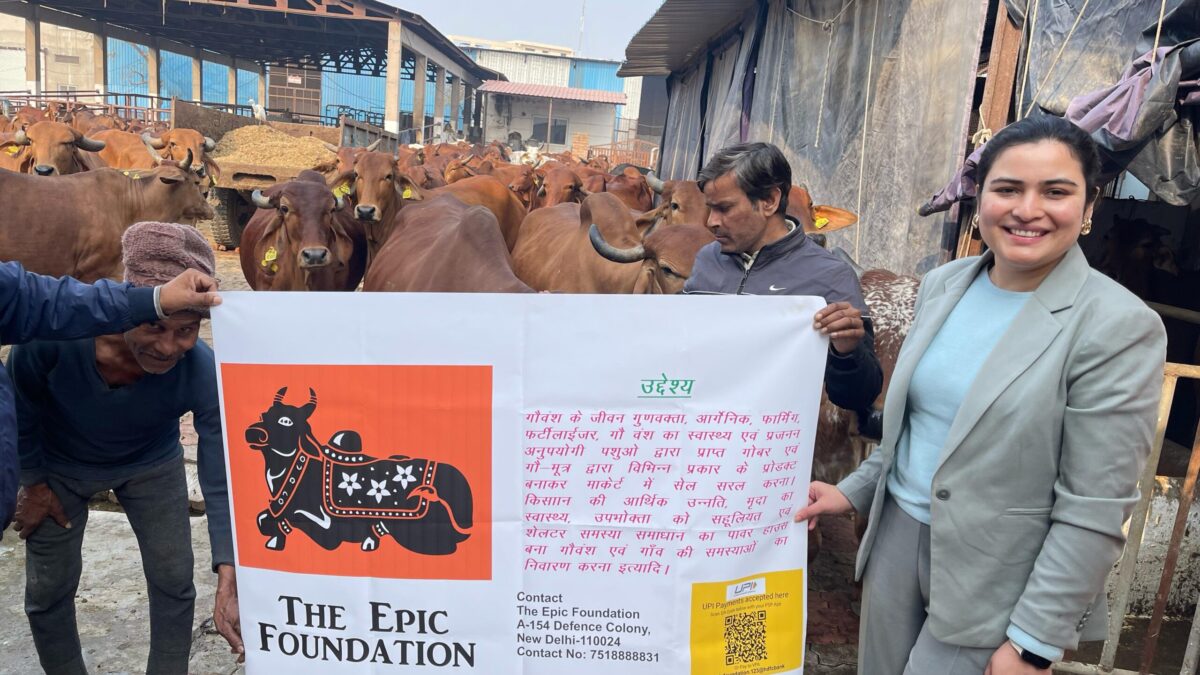 उद्देश्य
गौवंश के जीवन गुणवक्ता, आर्गेनिक, फार्मिंग,
फर्टीलाईजर, गौ वंश का स्वास्थ्य एवं प्रजनन
अनुपयोगी पशुओ द्वारा प्राप्त गोबर एवं
गौ–मूत्र द्वारा विभिन्न प्रकार के प्रोडक्ट
बनाकर मार्केट में सेल सरल करना।
किसाान की आर्थिक उन्नति, मृदा का
स्वास्थ्य, उपभोक्ता को सहूलियत एवं
शेलटर समस्या समाधान का पावर हाउस
बना गौवंश एवं गाँव की समस्याओं का
निवारण करना इत्यादि।
THE EPIC
FOUNDATION
Contact
The Epic Foundation
A-154 Defence Colony,
New Delhi-110024
Contact No: 7518888831
UPI
UPI Payments accepted here